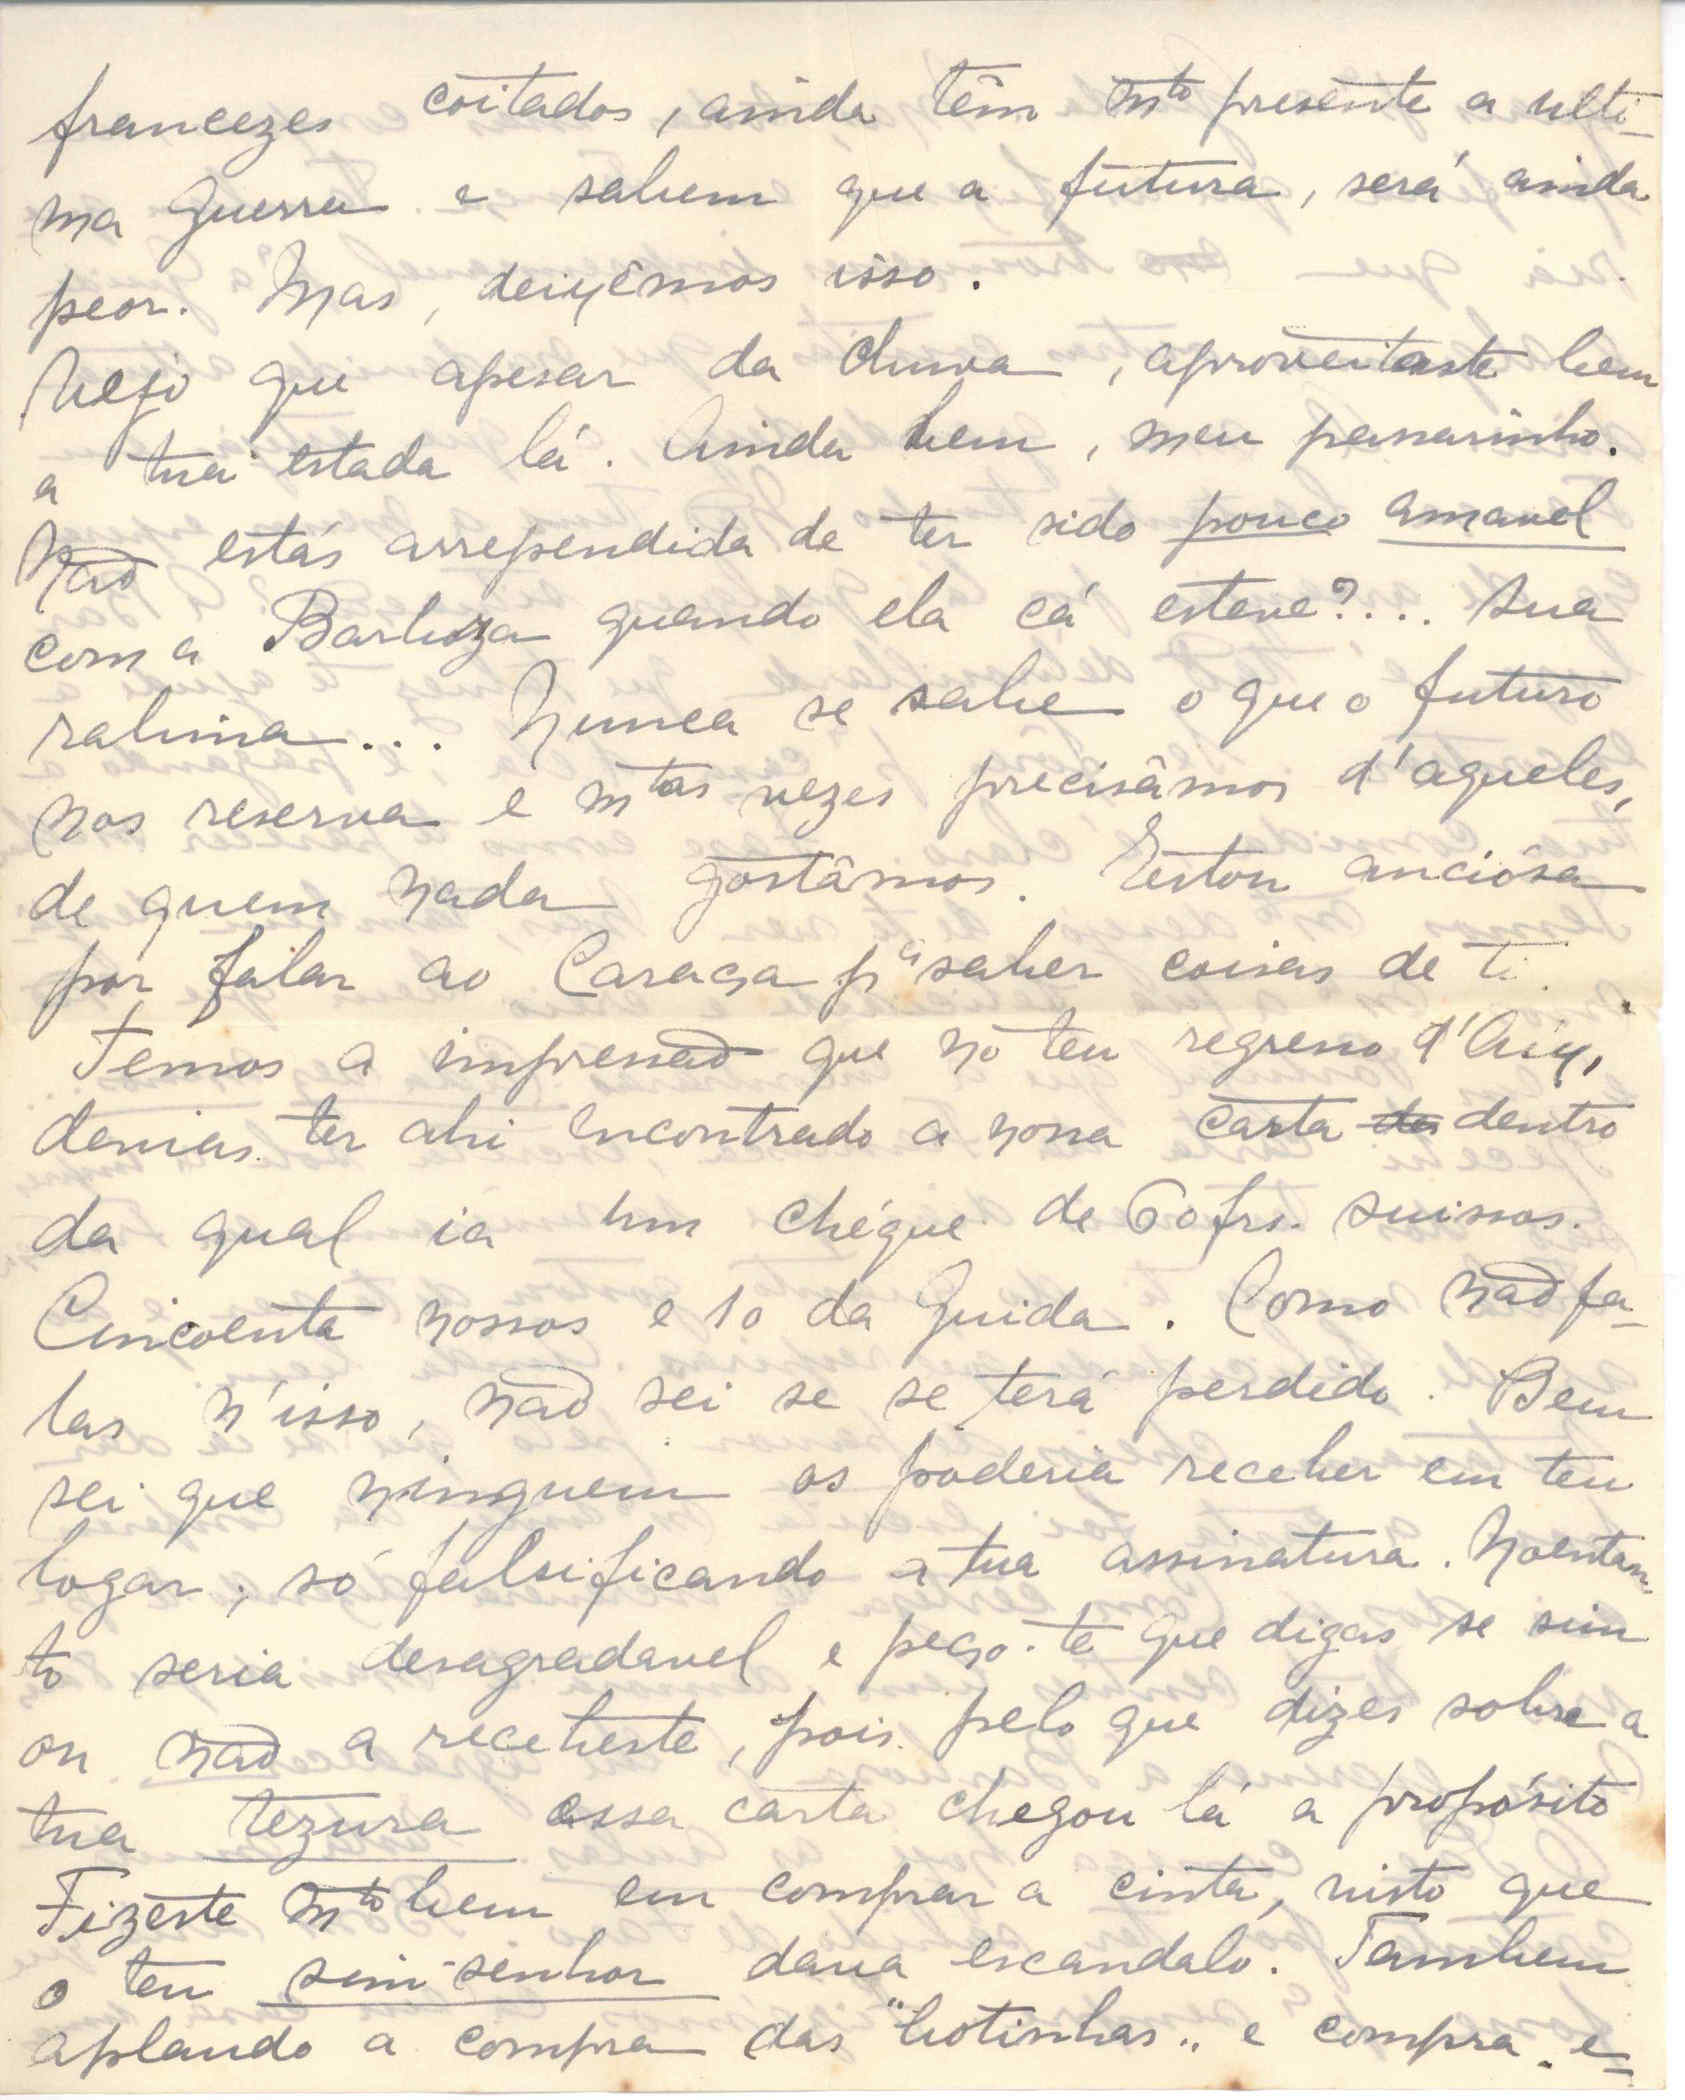 francezes coitados, ainda têm mto presente a ulti-
ma Guerra e sabem que a futura, será ainda
peor. Mas, deixêmos isso.
Vejo que apesar da chuva, aproveitaste bem
a tua estada lá. Ainda bem, meu passarinho.
Não estás arrependida de ter sido pouco amavel
com a Barboza quando ela cá esteve?... Sua
rabina... Nunca se sabe o que o futuro
nos reserva e mtas vezes precisâmos d'aqueles,
de quem nada gostâmos. Estou anciósa
por falar ao Caraça pa saber coisas de ti.
Temos a impressão que no teu regresso d'Aix,
devias ter ahi encontrado a nossa carta de dentro
da qual ia um chéque de 60 frs. suissos.
Cincoenta nossos e 10 da Guida. Como não fa-
las n'isso, não sei se se terá perdido. Bem
sei que ninguem os poderia receber em teu
logar, só falsificando a tua assinatura. Noentan-
to seria desagradavel e peço-te que digas se sim
ou não a recebeste, pois pelo que dizes sobre a
tua tezura essa carta chegou lá a propósito
Fizeste mto bem em comprar a cinta, visto que
o teu sim-senhor dava escandalo. Tambem
aplaudo a compra das "botinhas" e compra-e-